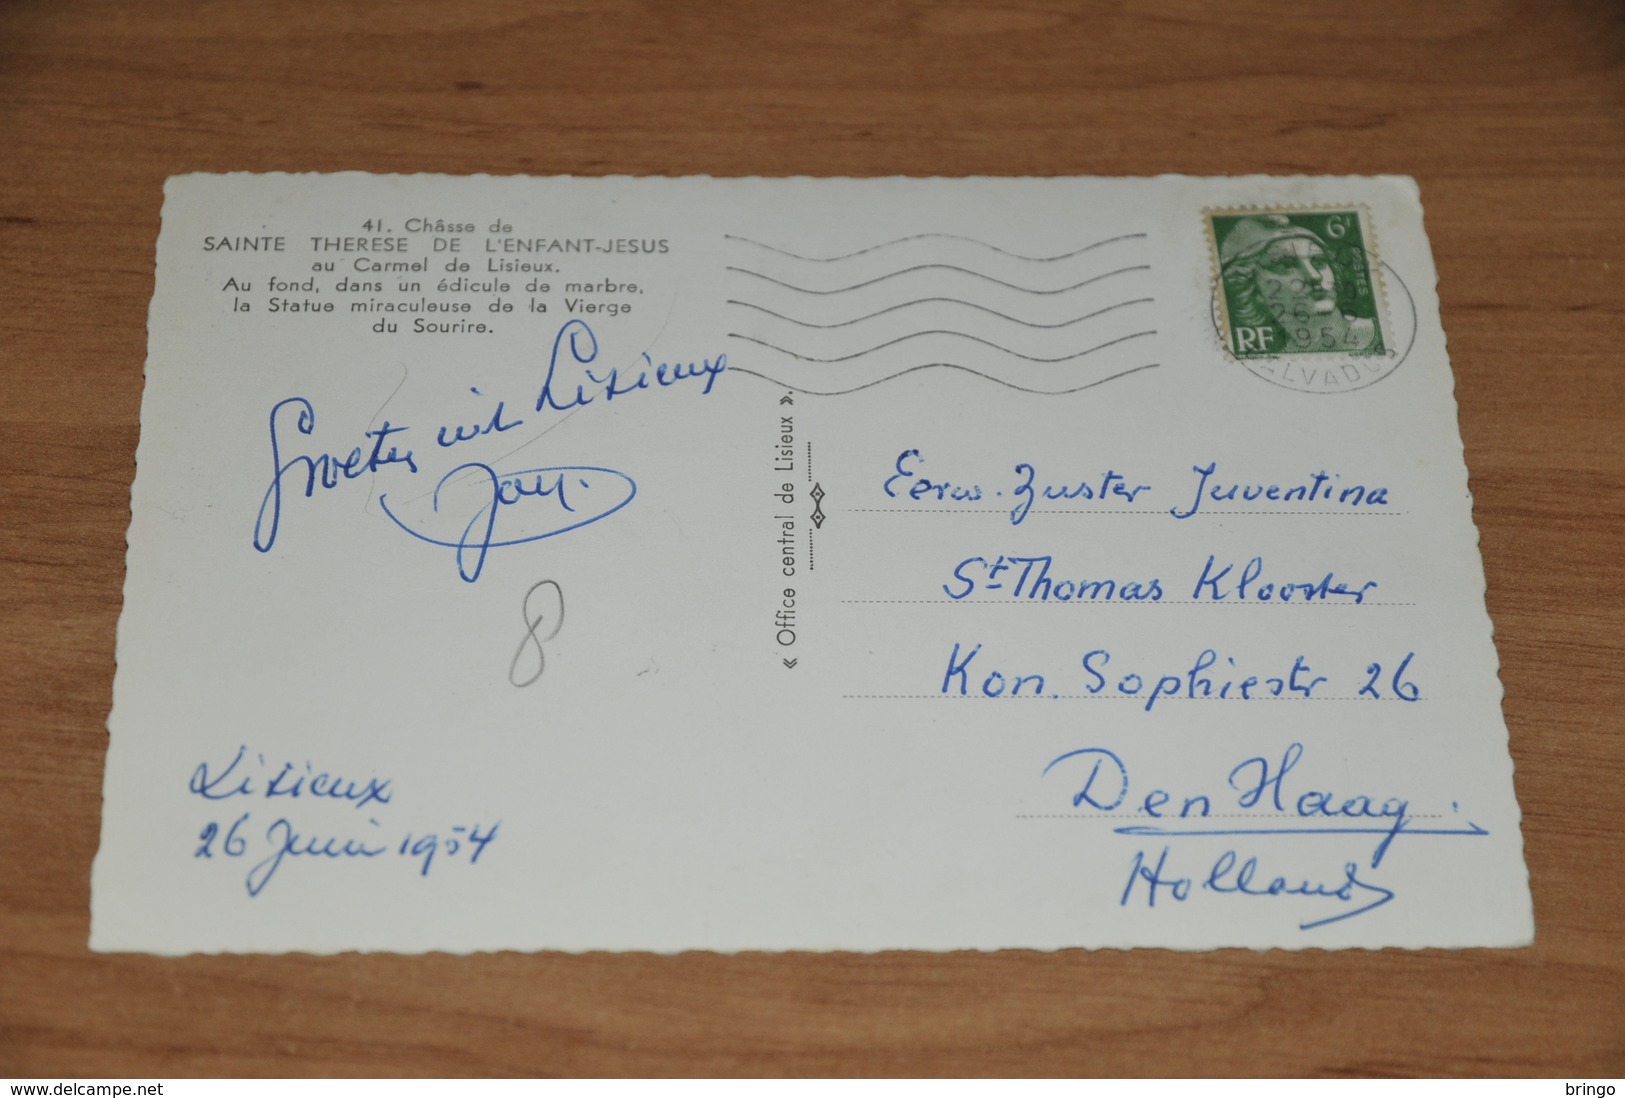 41. Châsse de
SAINTE THERESE DE L'ENFANT-JESUS
au Carmel de Lisieux.
Au fond, dans un édicule de marbre,
la Statue miraculeuse de la Vierge
du Sourire.
Groeten uit Lisieux
8
Lisieux
26 Juin 1954
« Office central de Lisieux ».
6F
POSTES
RF
26-6
1954
CALVADOS
Eerw. Zuster Juventina
St Thomas Klooster
Kon. Sophiestr 26
Den Haag.
Holland
delcampe.net
bringo